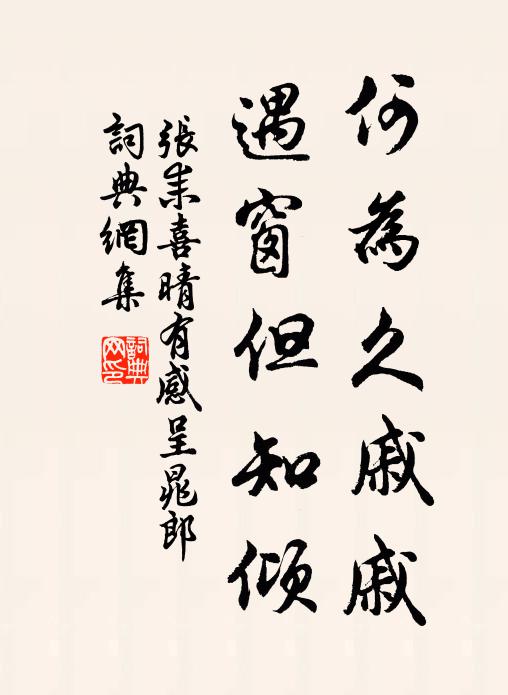 何為久戚戚
遇窗但知傾
張耒喜晴有感呈晁郎
詞典網集
詞典
网印